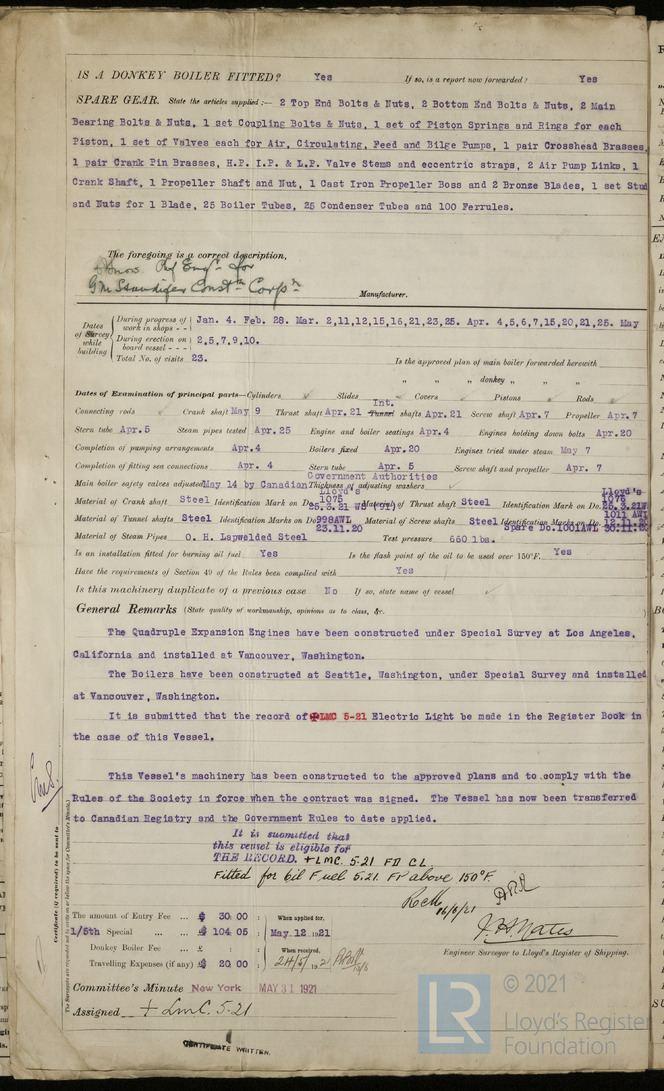 IS A DONKEY BOILER FITTED? Yes If so, is a report now forwarded? Yes
SPARE GEAR. State the articles supplied :— 2 Top End Bolts & Nuts, 2 Bottom End Bolts & Nuts, 2 Main
Bearing Bolts & Nuts, 1 set Coupling Bolts & Nuts, 1 set of Piston Springs and Rings for each
Piston, 1 set of Valves each for Air, Circulating, Feed and Bilge Pumps, 1 pair Crosshead Brasses,
1 pair Crank Pin Brasses, H.P. I.P. & L.P. Valve Stems and eccentric straps, 2 Air Pump Links, 1
Crank Shaft, 1 Propeller Shaft and Nut, 1 Cast Iron Propeller Boss and 2 Bronze Blades, 1 set Stud
and Nuts for 1 Blade, 25 Boiler Tubes, 25 Condenser Tubes and 100 Ferrules.
The foregoing is a correct description,
Engr. for
G M Standifer Constn Corpn
Manufacturer.
Dates of Survey while building
During progress of work in shops - - Jan. 4. Feb. 28. Mar. 2,11,12,15,16,21,23,25. Apr. 4,5,6,7,15,20,21,25. May
During erection on board vessel - - - 2,5,7,9,10.
Total No. of visits 23. Is the approved plan of main boiler forwarded herewith
" " " donkey " " "
Dates of Examination of principal parts—Cylinders Slides Covers Pistons Rods
Connecting rods Crank shaft May 9 Thrust shaft Apr. 21 Int. Tunnel shafts Apr. 21 Screw shaft Apr. 7 Propeller Apr. 7
Stern tube Apr. 5 Steam pipes tested Apr. 25 Engine and boiler seatings Apr. 4 Engines holding down bolts Apr. 20
Completion of pumping arrangements Apr. 4 Boilers fixed Apr. 20 Engines tried under steam May 7
Completion of fitting sea connections Apr. 4 Stern tube Apr. 5 Screw shaft and propeller Apr. 7
Main boiler safety valves adjusted May 14 by Canadian Government Authorities Thickness of adjusting washers
Material of Crank shaft Steel Identification Mark on Do. Lloyd's 1075 25.3.21 Material of Thrust shaft Steel Identification Mark on Do. Lloyd's 1076 25.3.21
Material of Tunnel shafts Steel Identification Marks on Do. 998AWL 23.11.20 Material of Screw shafts Steel Identification Marks on Do. 1011 AWL 12.11.20
Spare Do. 1001AWL 30.11.20
Material of Steam Pipes O. H. Lapwelded Steel Test pressure 660 lbs.
Is an installation fitted for burning oil fuel Yes Is the flash point of the oil to be used over 150°F. Yes
Have the requirements of Section 49 of the Rules been complied with Yes
Is this machinery duplicate of a previous case No If so, state name of vessel
General Remarks (State quality of workmanship, opinions as to class, &c.
The Quadruple Expansion Engines have been constructed under Special Survey at Los Angeles,
California and installed at Vancouver, Washington.
The Boilers have been constructed at Seattle, Washington, under Special Survey and installed
at Vancouver, Washington.
It is submitted that the record of +LMC 5-21 Electric Light be made in the Register Book in
the case of this Vessel.
This Vessel's machinery has been constructed to the approved plans and to comply with the
Rules of the Society in force when the contract was signed. The Vessel has now been transferred
to Canadian Registry and the Government Rules to date applied.
It is submitted that
this vessel is eligible for
THE RECORD. + LMC. 5.21 FD CL
Fitted for oil Fuel 5.21. FP above 150°F.
16/6/21
The amount of Entry Fee ... $ 30.00 When applied for,
1/5th Special ... ... $ 104.05 May. 12.1921
Donkey Boiler Fee ... £ : : When received,
Travelling Expenses (if any) $ 20.00
Engineer Surveyor to Lloyd's Register of Shipping.
Committee's Minute New York MAY 31 1921
Assigned + LMC. 5.21
CERTIFICATE WRITTEN.
Certificate (if required) to be sent to
The Surveyors are requested not to write on or below the space for Committee's Minute.
LR © 2021
Lloyd's Register
Foundation